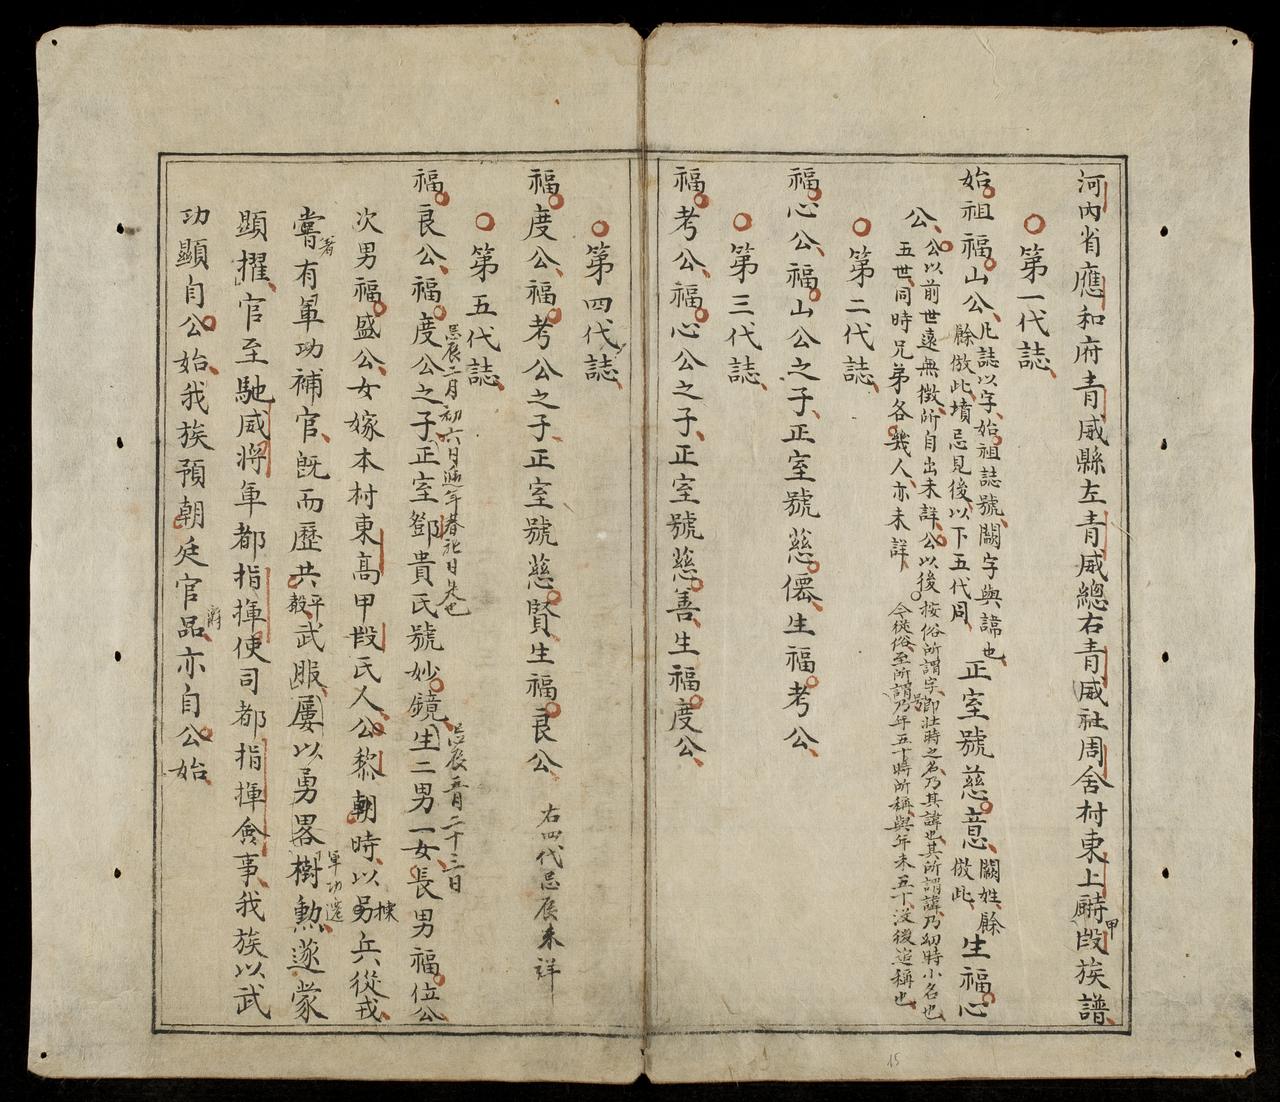 河內省應和府青威縣左青威總右青威社周舍村東上甲段族譜
第一代誌
始祖福山公凡誌以字始祖誌號闕字與諱也餘倣此墳忌見後以下五代同正室號慈意闕姓餘倣此生福心
公公以前世遠無徵所自出未詳公以後按俗所謂字號卽壯時之名乃其諱也其所謂諱乃幼時小名也
五世同時兄弟各幾人亦未詳今從俗至所謂乃年五十時所稱與年未五十沒後追稱也
第二代誌
福心公福山公之子正室號慈僊生福考公
第三代誌
福考公福心公之子正室號慈善生福度公
第四代誌
福度公福考公之子正室號慈賢生福良公右四代忌辰未詳
第五代誌
忌辰二月初六日近年春祀日是也
忌辰五月二十三日
福良公福度公之子正室鄧貴氏號妙鏡生二男一女長男福位公
次男福盛公女嫁本村東高甲段氏人公黎朝時以揀兵從戎
嘗著有軍功補官旣而歷共平毅武服屢以勇畧樹勲軍功遂蒙
顯擢官至馳威將軍都指揮使司都指揮僉事我族以武
功顯自公始我族預朝廷官爵品亦自公始
15